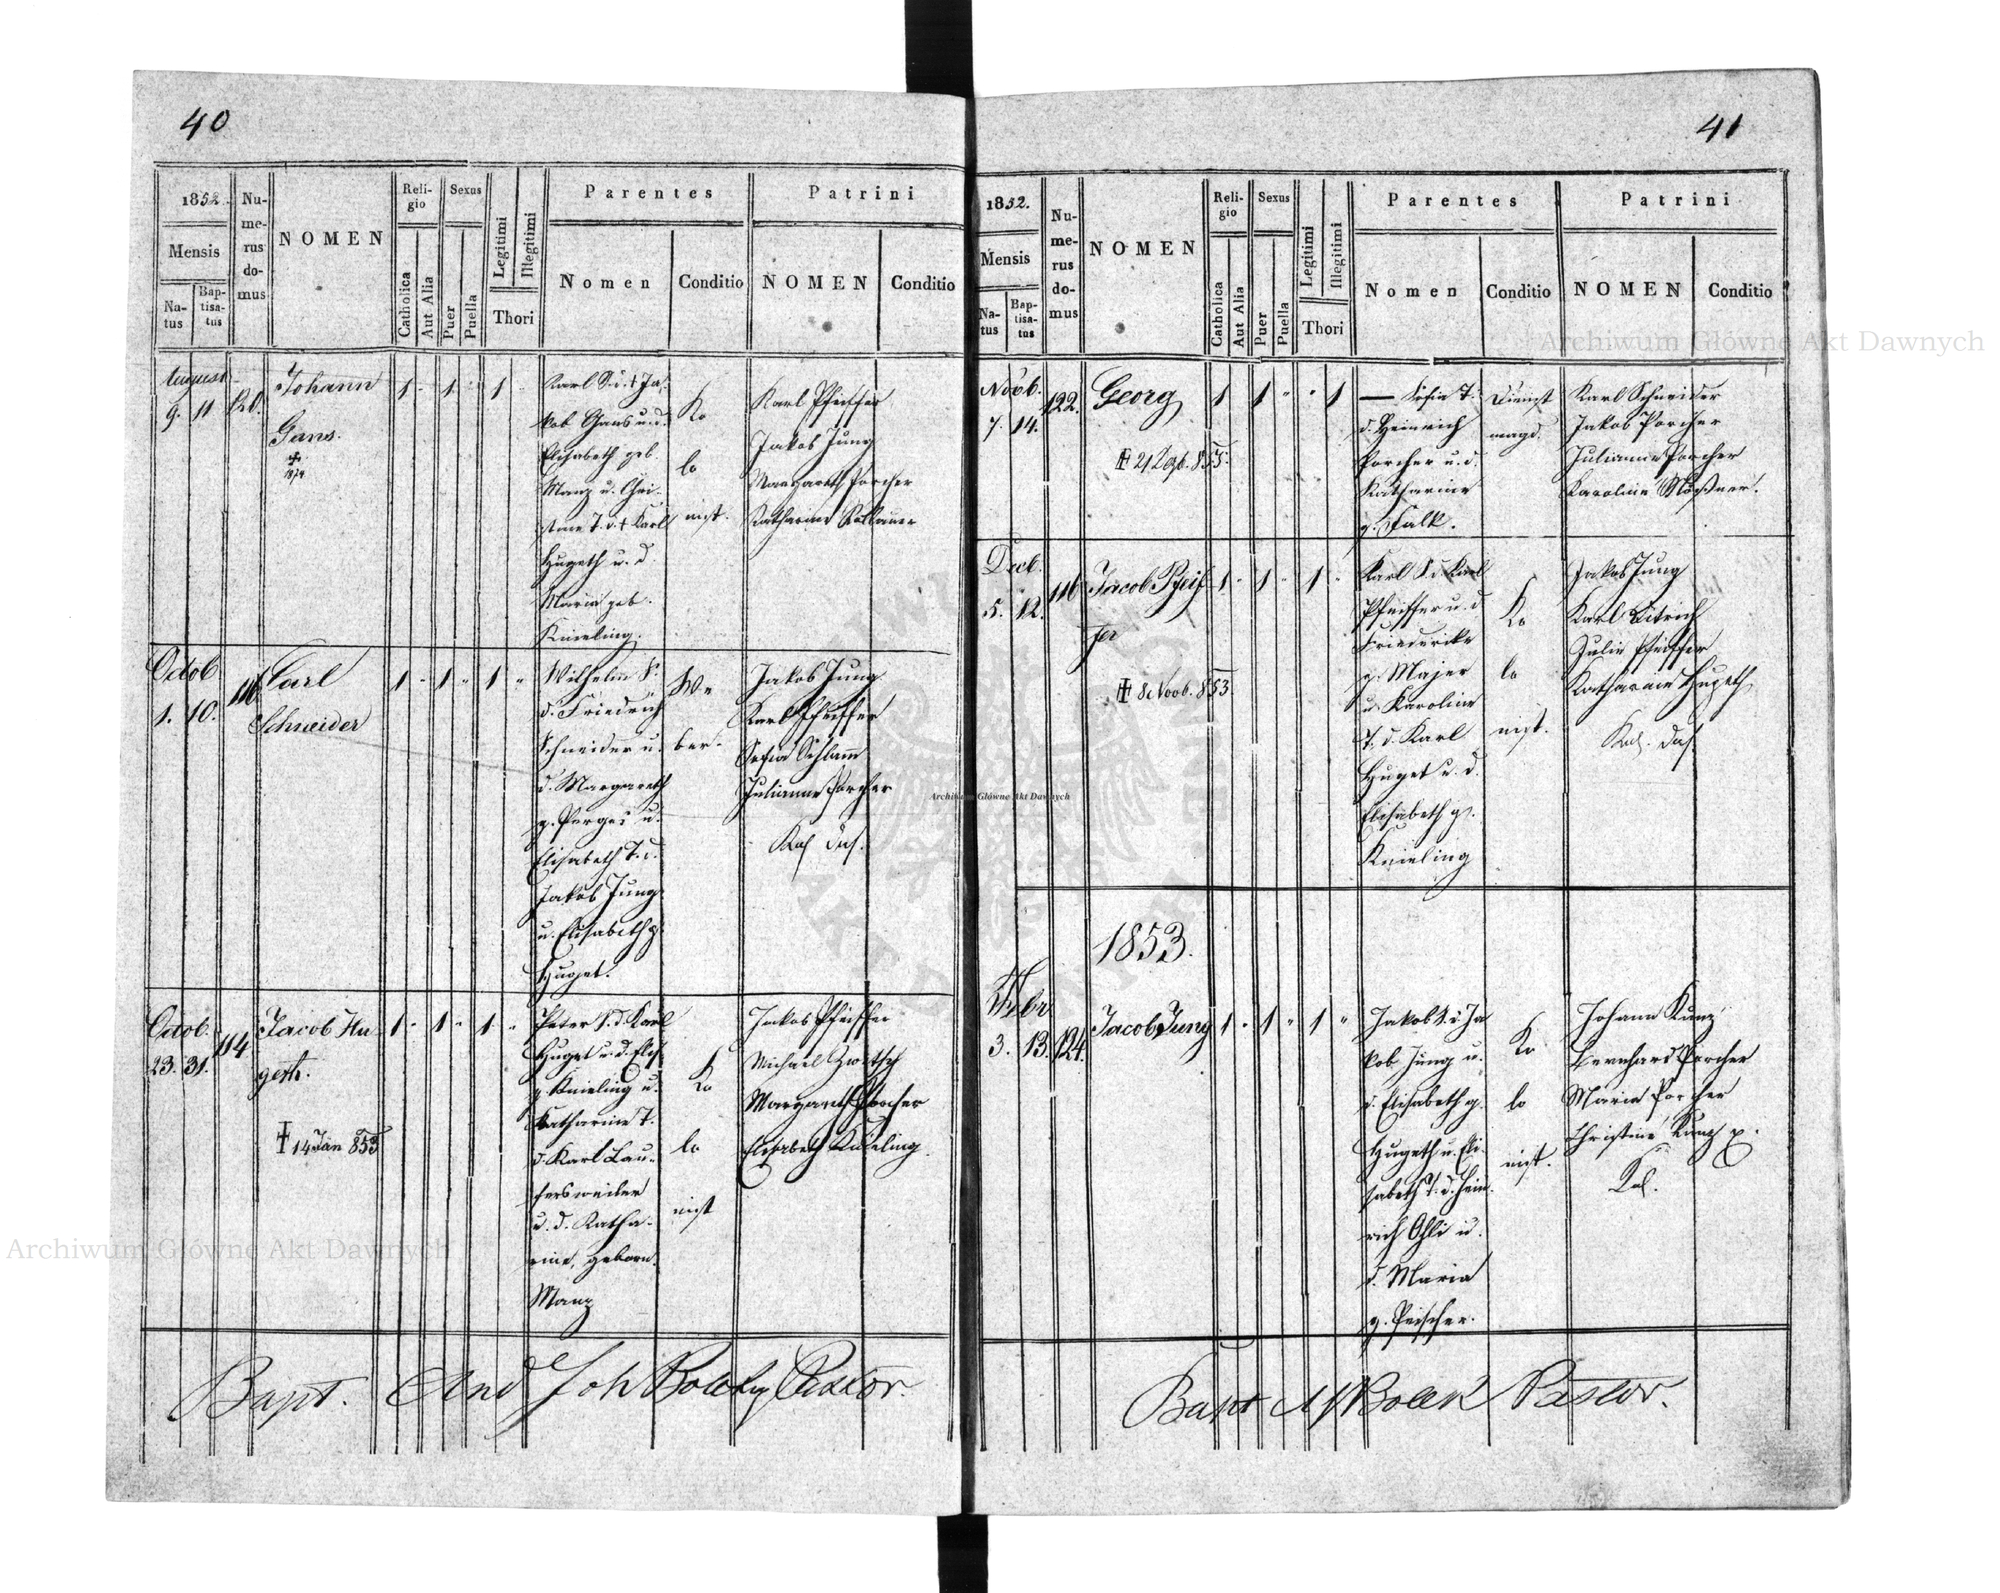 40
1852.
Mensis
Na-
tus
Bap-
tisa-
tus
Nu-
me-
rus
do-
mus
NOMEN
Reli-
gio
Catholica
Aut Alia
Sexus
Puer
Puella
Legitimi
Illegitimi
Thori
Parentes
Nomen
Conditio
Patrini
NOMEN
Conditio
August
9. 11
Johann
Gans.
1 1 1
Karl S. d. † Ja-
kob Gans u. d.
Elisabeth geb.
Manz u. Chri-
stine T. d. † Karl
Hugeth u. d.
Maria geb.
Knieling.
Ko
lo
nist.
Karl Pfeiffer
Jakob Jung
Margareth Porcher
Katharine
Octob
1. 10.
116
Carl
Schneider
1 1 1
Wilhelm S.
d. Friedrich
Schneider u.
d. Margareth
g. Perges u.
Elisabeth T. d.
Jakob Jung
u. Elisabeth g.
Huget.
We
ber.
Jakob Jung
Karl Pfeiffer
Sofia Schlamm
Julianne Porcher
Octob.
23. 31.
114
Jacob Hu
geth.
† 14 Jan 853
1 1 1
Peter S. d. Karl
Huget u. d. Elis
g. Knieling u.
Katharine T.
d. Karl Lau-
fersweiler
u. d. Katha-
rine, geborn.
Manz
Ko
lo
nist
Jakob Pfeiffer
Michael
Margareth Porcher
Elisabeth Knieling.
Bapt. And Joh Bolek Pastor.
41
1852.
Mensis
Na-
tus
Bap-
tisa-
tus
Nu-
me-
rus
do-
mus
NOMEN
Reli-
gio
Catholica
Aut Alia
Sexus
Puer
Puella
Legitimi
Illegitimi
Thori
Parentes
Nomen
Conditio
Patrini
NOMEN
Conditio
Novb.
7. 14.
122.
Georg
1 1 1
— Sofia T.
d. Heinrich
Porcher u. d.
Katharine
g. Falk.
Dienst
magd.
Karl Schneider
Jakob Porcher
Julianne Porcher
Karoline Mößner.
Decb.
5. 12.
116
Jacob Pfeif-
fer
† 8 Novb. 853.
1 1 1
Karl S. d. Karl
Pfeiffer u. d
Friedericke
g. Majer
u. Karoline
T. d. Karl
Huget u. d.
Elisabeth g.
Knieling
Ko
lo
nist.
Jakob Jung
Karl Ditrich
Julie Pfeiffer
Katharine Hugeth
1853.
Febr
3. 13.
124.
Jacob Jung
1 1 1
Jakob S. d. Ja
kob Jung u.
d. Elisabeth g.
Hugeth u. Eli-
sabeth T. d. Hein-
rich Ohli u.
d. Maria
g. Peischer.
Ko
lo
nist.
Johann Kunz
Bernhard Porcher
Maria Porcher
Christine Kunz
Bapt AJBolek Pastor.
Archiwum Główne Akt Dawnych
Archiwum Główne Akt Dawnych
Archiwum Główne Akt Dawnych